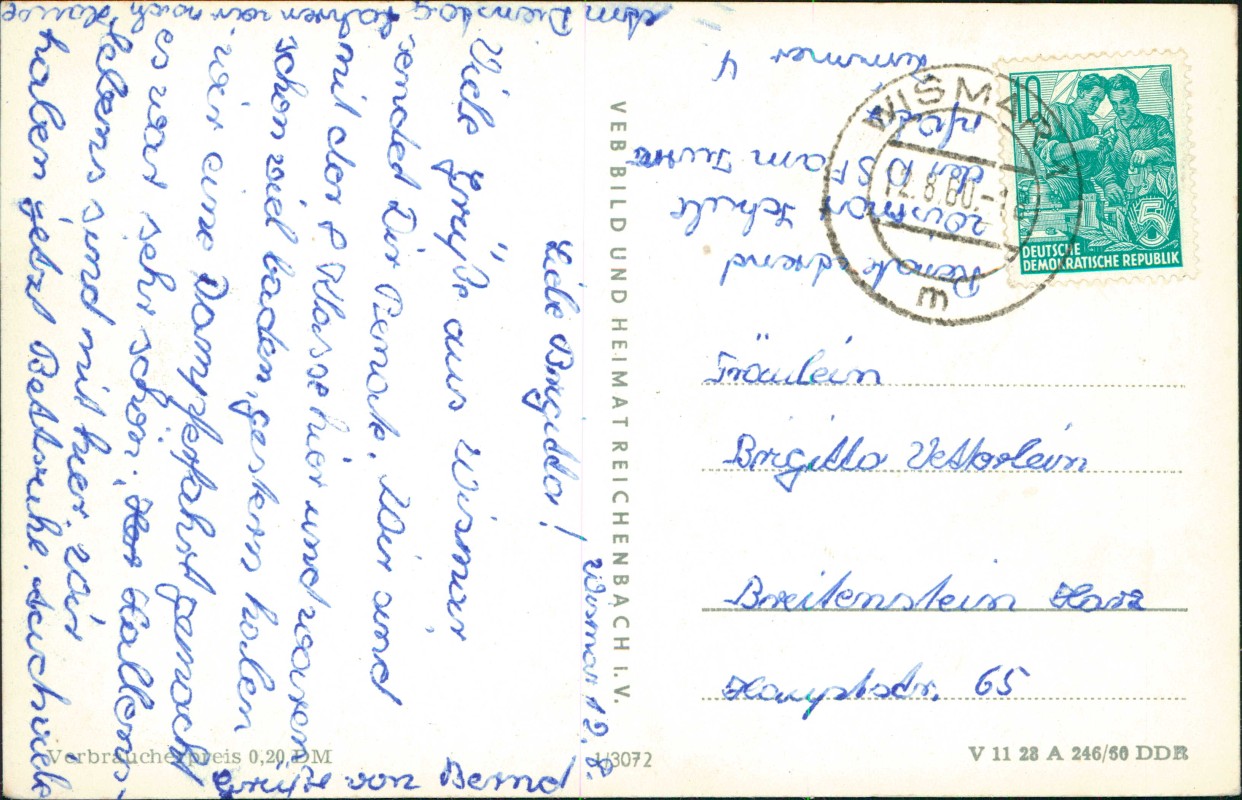 Wismar 12.8.
Liebe Brigitta!
Viele Grüße aus Wismar
sendet Dir Renate. Wir sind
mit der 8 Klasse hier und waren
schon viel baden, gestern haben
wir eine Dampferfahrt gemacht
es war sehr schön.
sind mit hier, wir
haben jetzt Bettruhe. Auch viele
Grüße von Bernd
Am Dienstag fahren wir nach Hause
VEB BILD UND HEIMAT REICHENBACH i. V.
Verbraucherpreis 0,20 DM
1/3072
V 11 28 A 246/60 DDR
Renate
Wismar Schule
der DSF am Turm
platz
4
WISMAR 1
12.8.60.-18
m
10
5
DEUTSCHE
DEMOKRATISCHE REPUBLIK
Fräulein
Brigitta Vetterlein
Breitenstein Harz
Hauptstr. 65